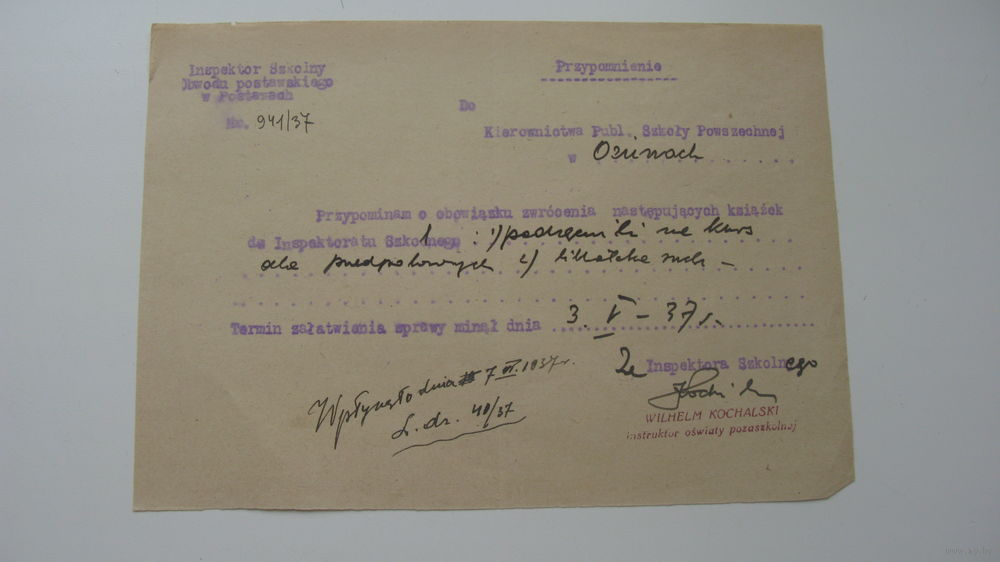 Inspektor Szkolny
Obwodu postawskiego
w Postawach
Nr. 941/37
Przypomnienie
Do
Kierownictwa Publ. Szkoły Powszechnej
w
Przypominam o obowiązku zwrócenia następujących książek
do Inspektoratu Szkolnego : 1) podręczniki na kurs
dla przedpoborowych 2)
Termin załatwienia sprawy minął dnia 3. V - 37 r.
Za Inspektora Szkolnego
WILHELM KOCHALSKI
instruktor oświaty pozaszkolnej
Wpłynęło dnia 7 VI. 1937 r.
L. dz. 40/37